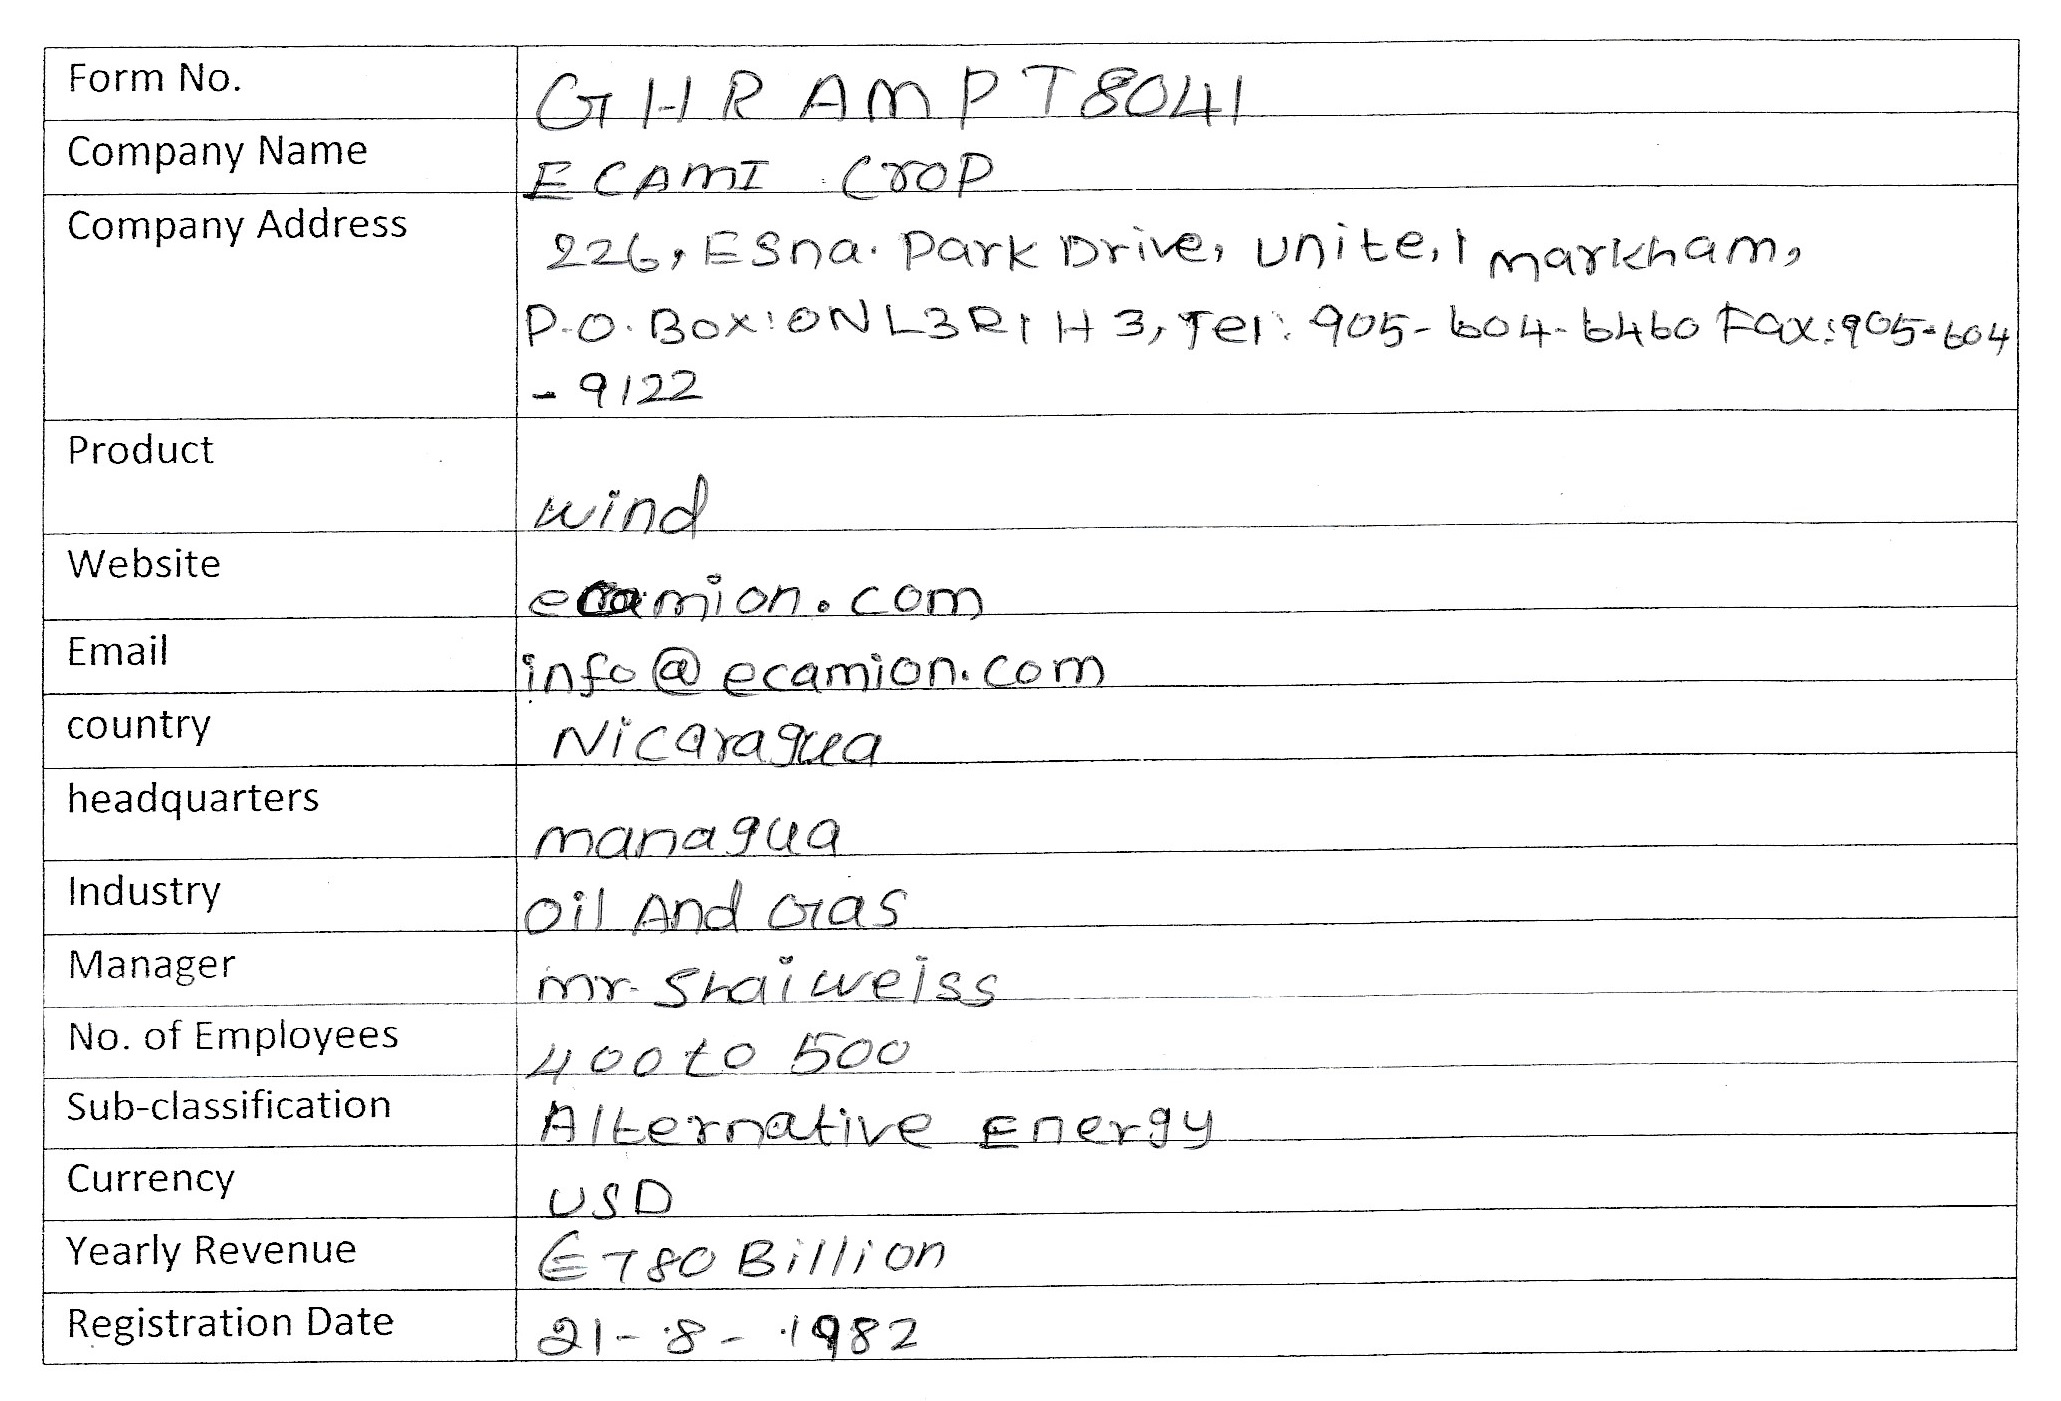 Form No. GHRAMPT8041
Company Name ECAMI CroP
Company Address 226, ESna. Park Drive, unite, 1 markham,
P.O. Box: ON L3R1H3, Tel: 905-604-6460 Fax: 905-604
- 9122
Product wind
Website ecamion.com
Email info@ecamion.com
country Nicaragua
headquarters managua
Industry Oil And Gas
Manager mr. Shai weiss
No. of Employees 400 to 500
Sub-classification Alternative Energy
Currency USD
Yearly Revenue €780 Billion
Registration Date 21-8-1982